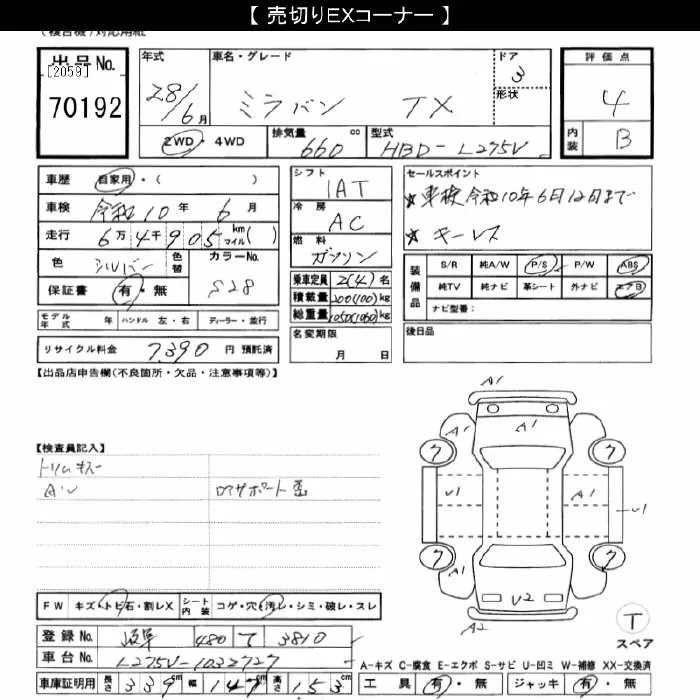 【 売切りEXコーナー 】
出品No.
[2059]
70192
年式
28/6月
車名・グレード
ミラバン TX
ドア
3
形状
評価点
4
内装
B
2WD・4WD
排気量
660 cc
型式
HBD-L275V
車歴 自家用・( )
車検 令和10年6月
走行 6万4千905 km マイル( )
色 シルバー 色替
カラーNo.
S28
保証書 有・無
シフト
1AT
冷房
AC
燃料
ガソリン
乗車定員 2(4)名
積載量 200(100)kg
総重量 1050(1060)kg
セールスポイント
★車検令和10年6月12日まで
★キーレス
装備品
S/R 純A/W P/S P/W ABS
純TV 純ナビ 革シート 外ナビ エアB
ナビ型番:
モデル年式 年 ハンドル 左・右 ディーラー・並行
リサイクル料金 7,390 円 預託済
名変期限
月 日
後日品
【出品店申告欄(不良箇所・欠品・注意事項等)】
【検査員記入】
トリムキズー
A・U
ロアサポート歪
A1
A1
A1
A1
ク
ク
U1
U1
ク
ク
U2
A2
T
スペア
FW キズ・トビ石・割レX
シート内装 コゲ・穴・汚レ・シミ・破レ・スレ
登録No. 岐阜 480 て 3810
車台No. L275V-1032727
車庫証明用 長さ 339cm 幅 147cm 高さ 153cm
A-キズ C-腐食 E-エクボ S-サビ U-凹ミ W-補修 XX-交換済
工具 有・無 ジャッキ 有・無